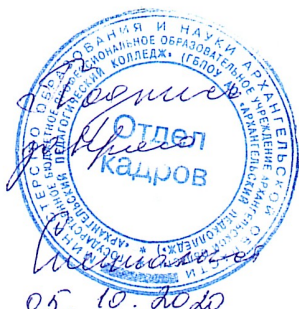 МИНИСТЕРСТВО ОБРАЗОВАНИЯ И НАУКИ АРХАНГЕЛЬСКОЙ ОБЛАСТИ
ГОСУДАРСТВЕННОЕ БЮДЖЕТНОЕ ПРОФЕССИОНАЛЬНОЕ ОБРАЗОВАТЕЛЬНОЕ УЧРЕЖДЕНИЕ АРХАНГЕЛЬСКОЙ ОБЛАСТИ
«АРХАНГЕЛЬСКИЙ ПЕДАГОГИЧЕСКИЙ КОЛЛЕДЖ» (ГБПОУ АО «АРХАНГЕЛЬСКИЙ ПЕДКОЛЛЕДЖ»)
Отдел
кадров
Подпись
05.10.2020